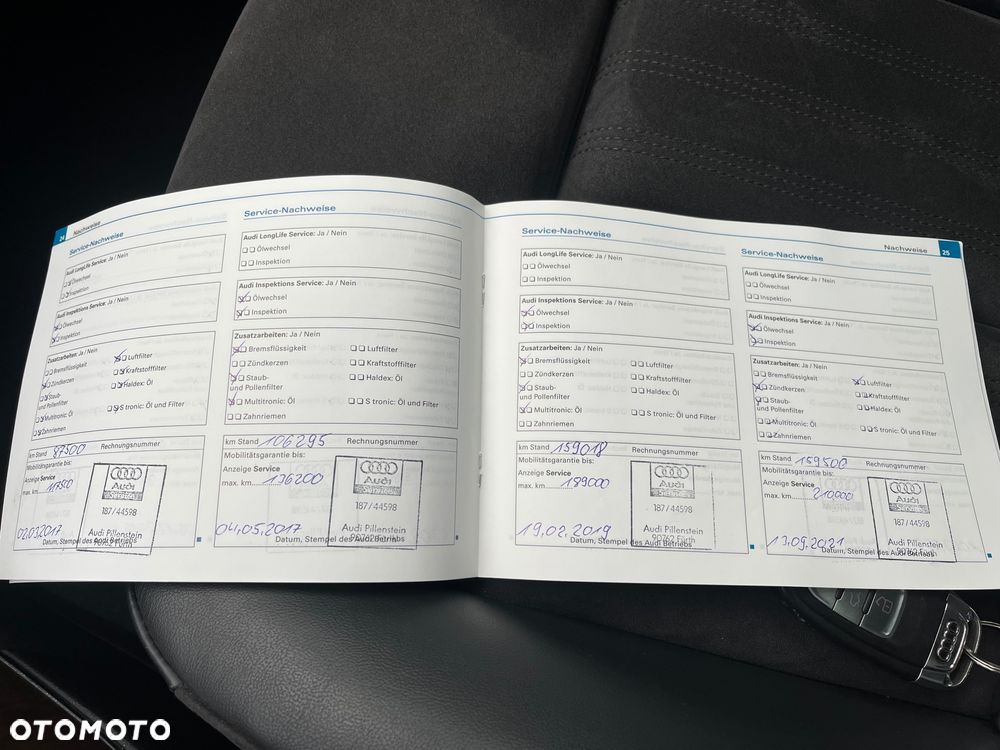 24 Nachweise
Service-Nachweise
Audi LongLife Service: Ja / Nein
Ölwechsel
Inspektion
Audi Inspektions Service: Ja / Nein
Ölwechsel
Inspektion
Zusatzarbeiten: Ja / Nein
Bremsflüssigkeit
Luftfilter
Zündkerzen
Kraftstofffilter
Staub-
und Pollenfilter
Haldex: Öl
Multitronic: Öl
S tronic: Öl und Filter
Zahnriemen
km Stand 87500 Rechnungsnummer
Mobilitätsgarantie bis:
Anzeige Service
max. km
Audi
187/44598
Audi Pillenstein
90762 Fürth
02.03.2017
Datum, Stempel des Audi Betriebs
Service-Nachweise
Audi LongLife Service: Ja / Nein
Ölwechsel
Inspektion
Audi Inspektions Service: Ja / Nein
Ölwechsel
Inspektion
Zusatzarbeiten: Ja / Nein
Bremsflüssigkeit
Luftfilter
Zündkerzen
Kraftstofffilter
Staub-
und Pollenfilter
Haldex: Öl
Multitronic: Öl
S tronic: Öl und Filter
Zahnriemen
km Stand 106295 Rechnungsnummer
Mobilitätsgarantie bis:
Anzeige Service
max. km 136200
Audi
187/44598
Audi Pillenstein
90762 Fürth
04.05.2017
Datum, Stempel des Audi Betriebs
Service-Nachweise
Audi LongLife Service: Ja / Nein
Ölwechsel
Inspektion
Audi Inspektions Service: Ja / Nein
Ölwechsel
Inspektion
Zusatzarbeiten: Ja / Nein
Bremsflüssigkeit
Luftfilter
Zündkerzen
Kraftstofffilter
Staub-
und Pollenfilter
Haldex: Öl
Multitronic: Öl
S tronic: Öl und Filter
Zahnriemen
km Stand 159018 Rechnungsnummer
Mobilitätsgarantie bis:
Anzeige Service
max. km 189000
Audi
187/44598
Audi Pillenstein
90762 Fürth
19.02.2019
Datum, Stempel des Audi Betriebs
Nachweise 25
Service-Nachweise
Audi LongLife Service: Ja / Nein
Ölwechsel
Inspektion
Audi Inspektions Service: Ja / Nein
Ölwechsel
Inspektion
Zusatzarbeiten: Ja / Nein
Bremsflüssigkeit
Luftfilter
Zündkerzen
Kraftstofffilter
Staub-
und Pollenfilter
Haldex: Öl
Multitronic: Öl
S tronic: Öl und Filter
Zahnriemen
km Stand 159500 Rechnungsnummer
Mobilitätsgarantie bis:
Anzeige Service
max. km 210000
Audi
187/44598
Audi Pillenstein
90762 Fürth
13.09.2021
Datum, Stempel des Audi Betriebs
OTOMOTO